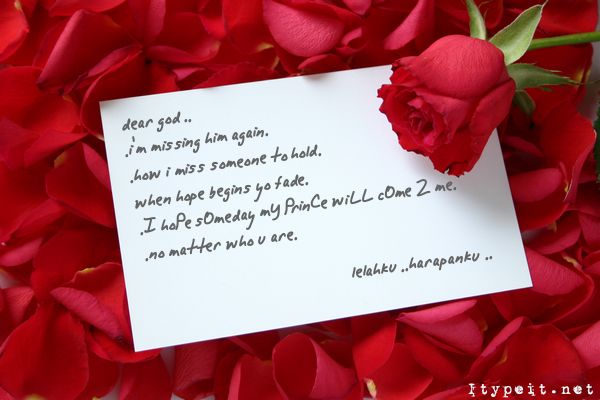 dear god..
.i'm missing him again.
.how i miss someone to hold.
when hope begins yo fade.
.I hoPe sOmeday mY PrinCe wiLL cOme 2 me.
.no matter who u are.
lelahku ..harapanku ..
Itypeit.net